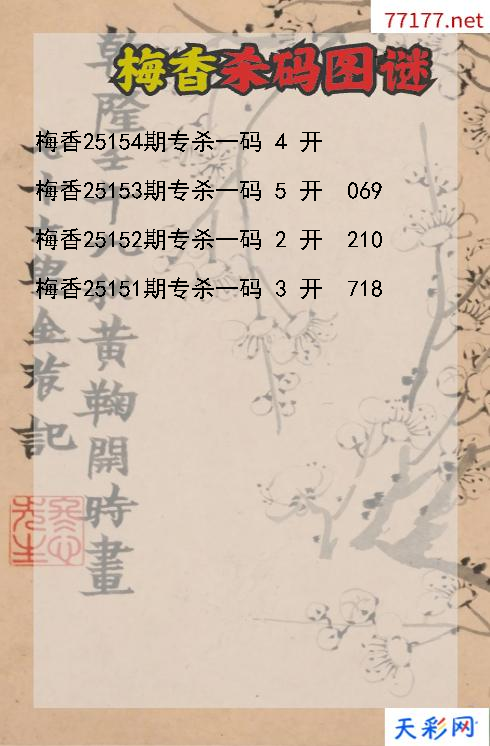 77177.net
梅香杀码图谜
梅香25154期专杀一码 4 开
梅香25153期专杀一码 5 开 069
梅香25152期专杀一码 2 开 210
梅香25151期专杀一码 3 开 718
黄鞠開時畫
記
先生
天彩网